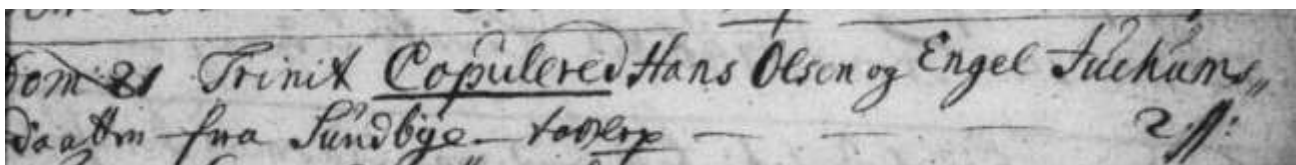 Dom: 21 Trinit Copulered Hans Olsen og Engel Juchums„
daatter fra Sundbye 2 ß: